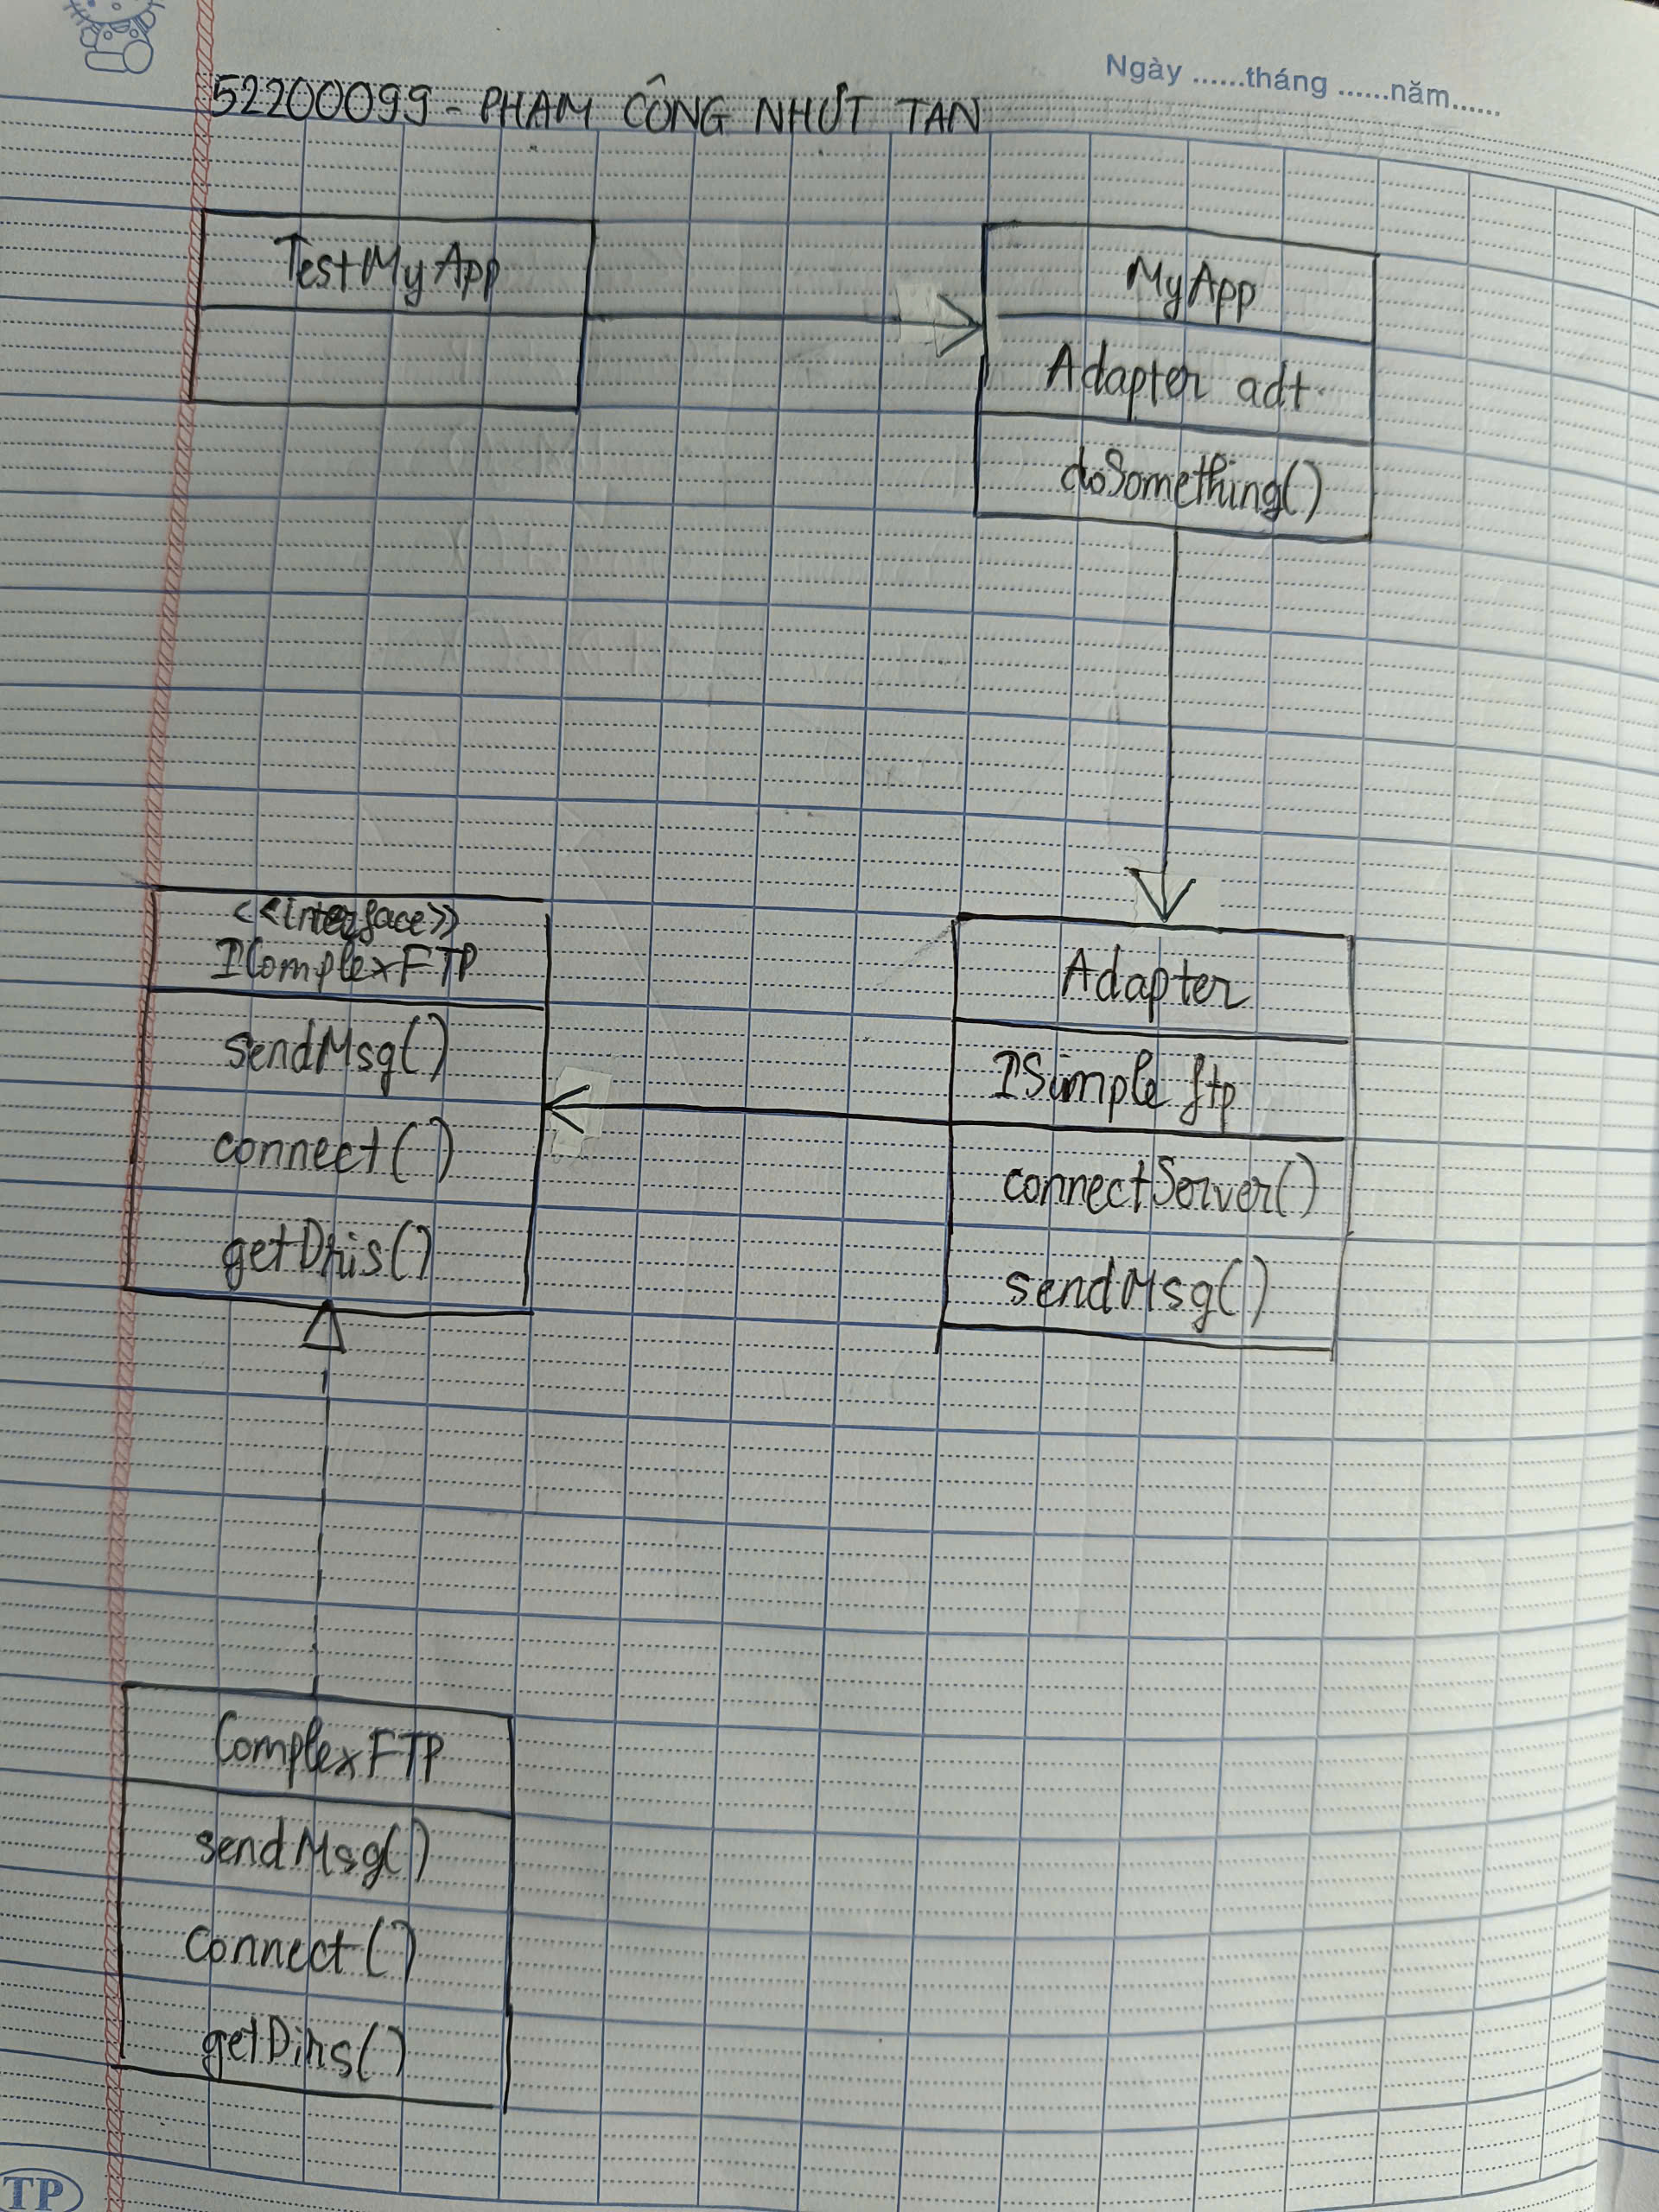 Ngày ......tháng ......năm......
52200099 - PHẠM CÔNG NHỰT TAN
TestMyApp
MyApp
Adapter adt
doSomething()
<<interface>>
IComplexFTP
sendMsg()
connect()
getDris()
Adapter
ISimple ftp
connectServer()
sendMsg()
ComplexFTP
sendMsg()
connect()
getDirs()
TP